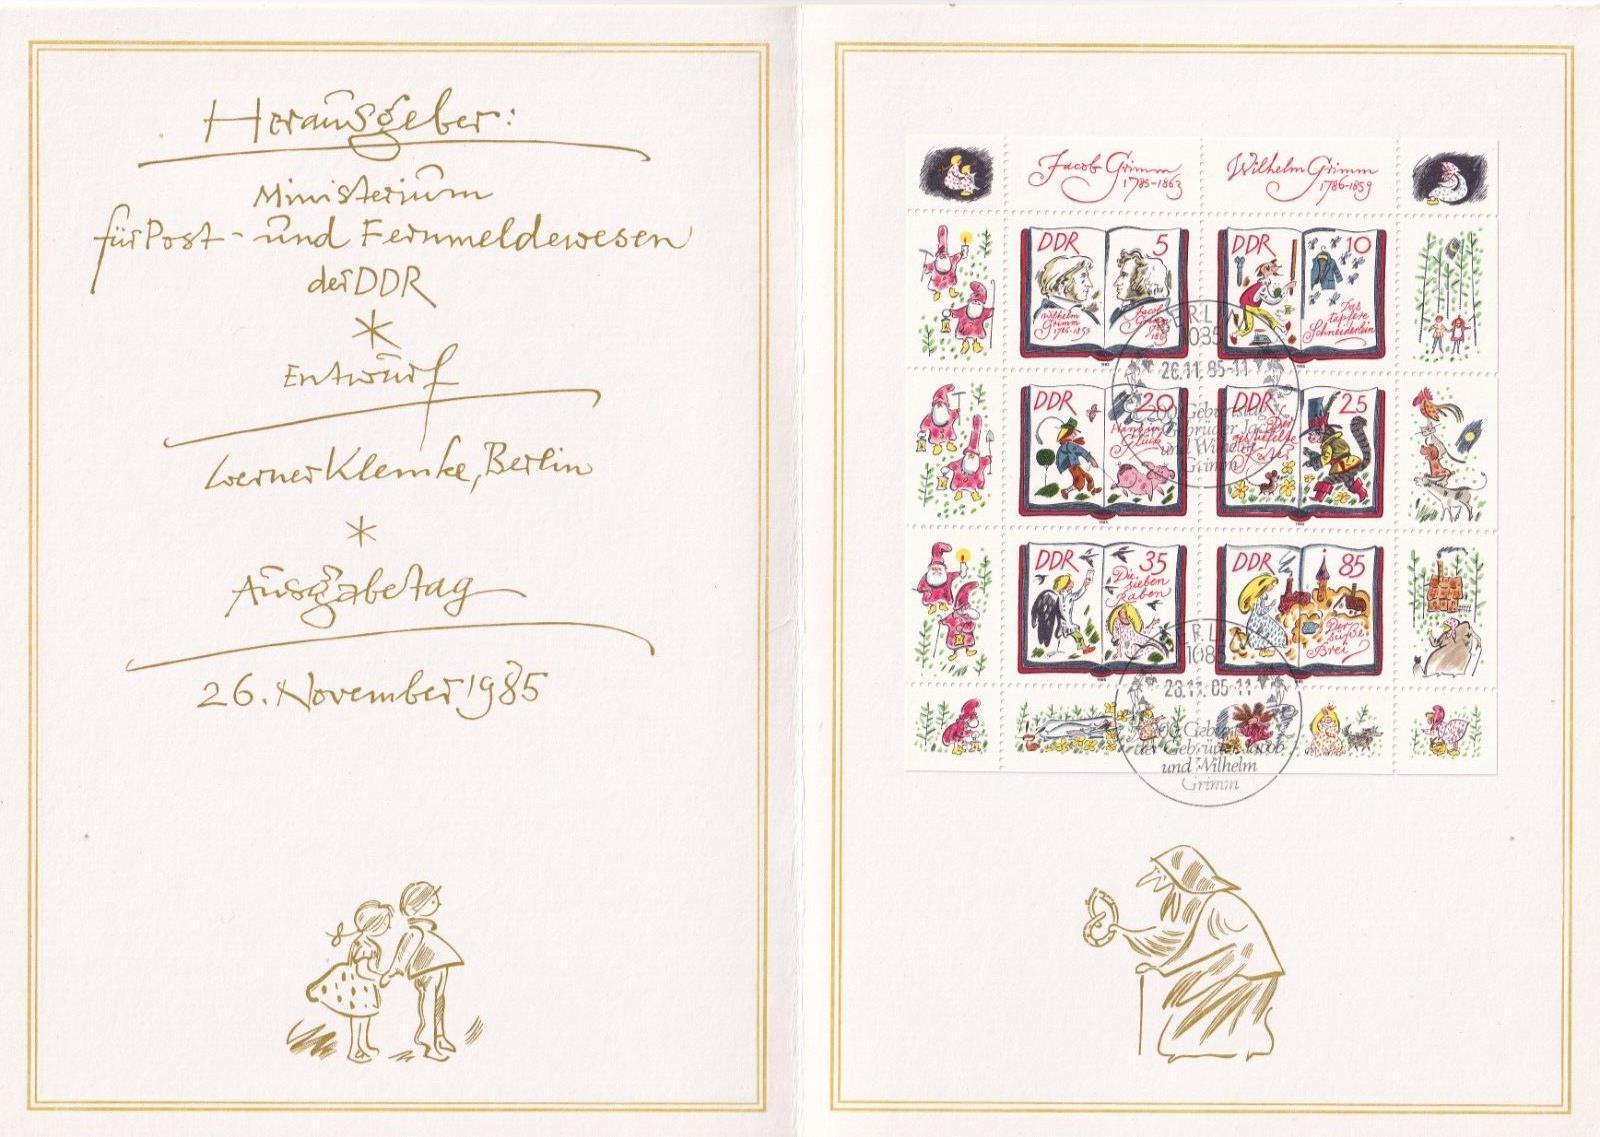 Herausgeber:
Ministerium
für Post- und Fernmeldewesen
der DDR
*
Entwurf
Werner Klemke, Berlin
*
Ausgabetag
26. November 1985
Jacob Grimm
1785-1863
Wilhelm Grimm
1786-1859
DDR 5
Wilhelm
Grimm
1786-1859
Jacob
Grimm
1785
1863
DDR 10
Das
tapfere
Schneiderlein
DDR 20
Hans im
Glück
DDR 25
Der
gestiefelte
Kater
DDR 35
Die
sieben
Raben
DDR 85
Der
süße
Brei
BERLIN
1085
26.11.85-11
200. Geburtstag
der Gebrüder Jacob
und Wilhelm
Grimm
BERLIN
1085
26.11.85-11
200. Geburtstag
der Gebrüder Jacob
und Wilhelm
Grimm